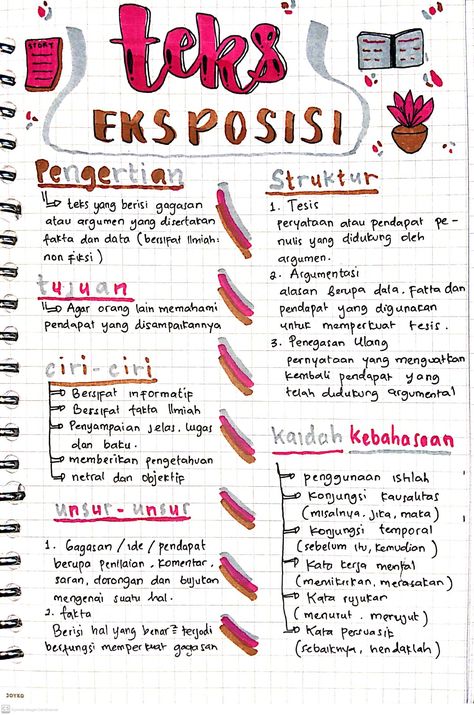 STORY
teks
EKSPOSISI
Pengertian
teks yang berisi gagasan
atau argumen yang disertakan
fakta dan data (bersifat ilmiah:
non fiksi)
tujuan
Agar orang lain memahami
pendapat yang disampaikannya
ciri-ciri
Bersifat informatif
Bersifat fakta Ilmiah
Penyampaian jelas, lugas
dan baku.
memberikan pengetahuan
netral dan objektif
unsur-unsur
1. Gagasan / ide / pendapat
berupa penilaian, komentar,
saran, dorongan dan bujukan
mengenai suatu hal.
2. fakta
Berisi hal yang benar² terjadi
berfungsi memperkuat gagasan
Struktur
1. Tesis
peryataan atau pendapat pe-
nulis yang didukung oleh
argumen.
2. Argumentasi
alasan berupa data, fakta dan
pendapat yang digunakan
untuk memperkuat tesis.
3. Penegasan Ulang
pernyataan yang menguatkan
kembali pendapat yang
telah didukung argumental
Kaidah kebahasaan
penggunaan istilah
Konjungsi kausalitas
(misalnya, jika, maka)
Konjungsi temporal
(sebelum itu, kemudian)
Kata kerja mental
(memikirkan, merasakan)
Kata rujukan
(menurut, merujuk)
Kata Persuasif
(sebaiknya, hendaklah)
JOYKO